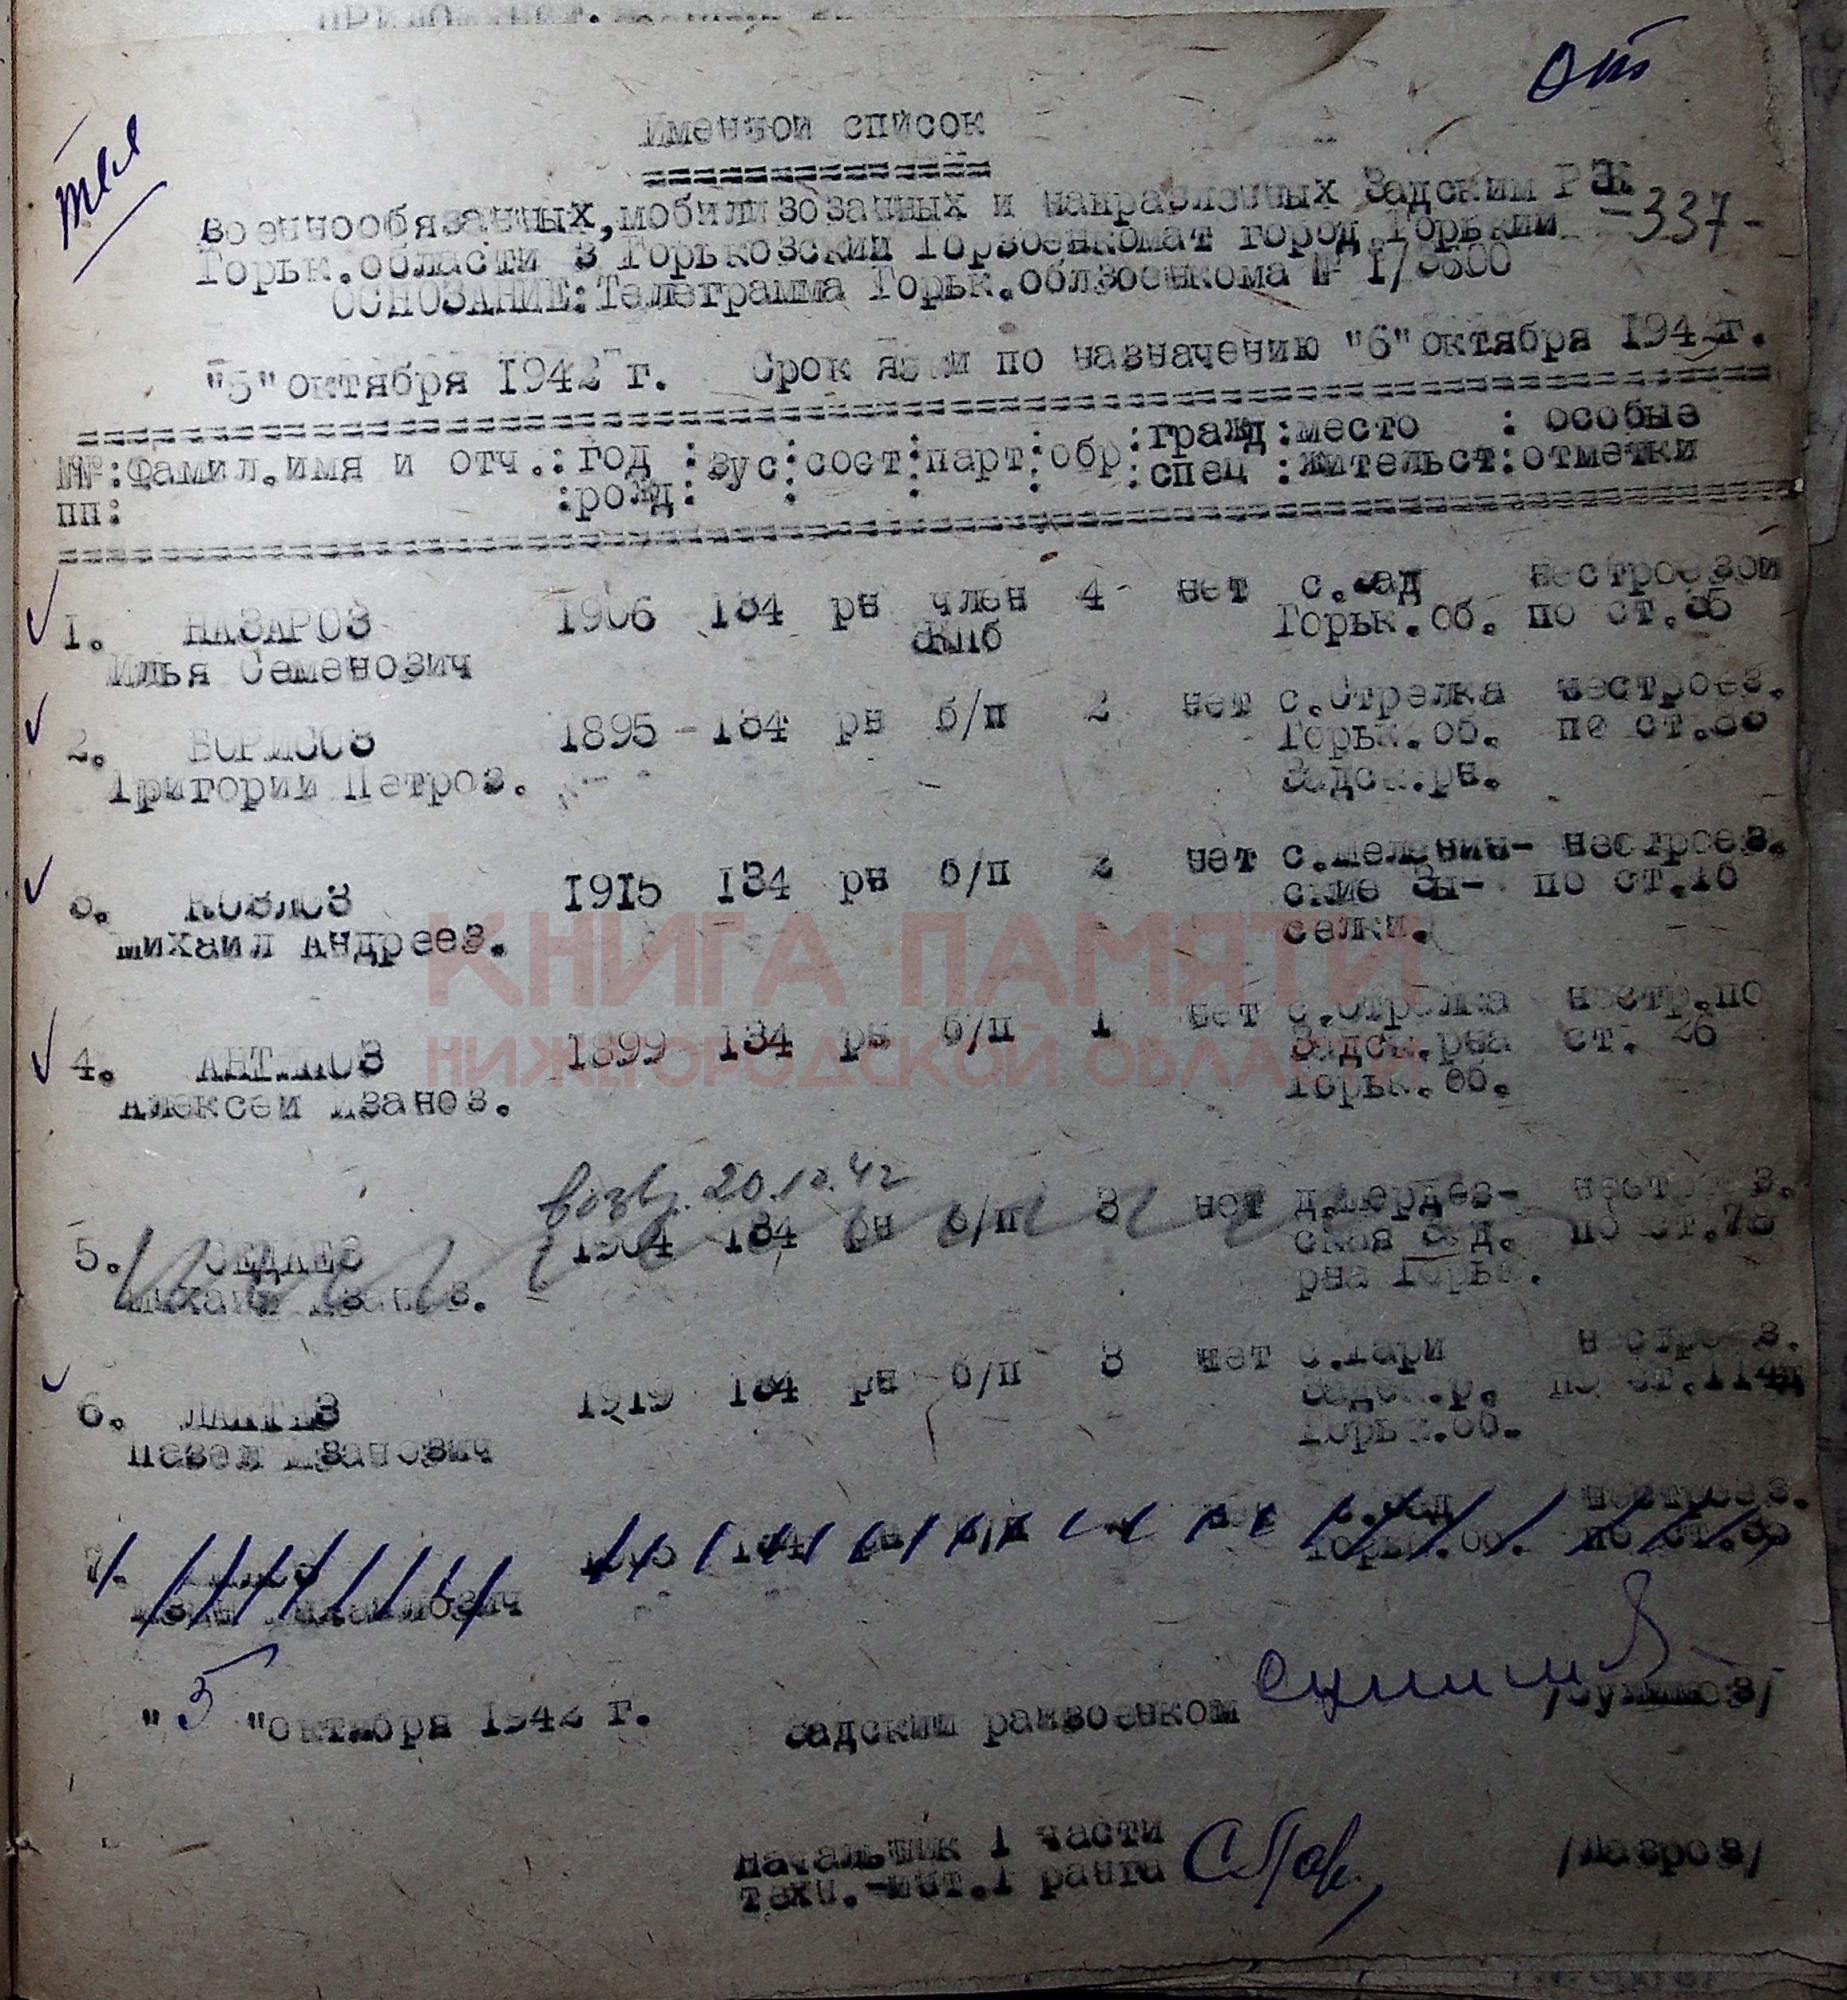 от
Именной список
военнообязанных, мобилизованных и направленных Вадским РВК
-337-
Горьк.области в Горьковский Горвоенкомат город Горький
ОСНОВАНИЕ: Телеграмма Горьк.облвоенкома № 1/
"5" октября 1942 г. Срок явки по назначению "6" октября 1942 г.
№№: Фамил.имя и отч.: год : вус: сост: парт: обр: гражд: место : особые
пп: :рожд: : : : : спец : жительст: отметки
1. НАЗАРОВ 1906 134 рн член 4 нет с.Вад нестроевой
Илья Семенович ВКПб Горьк.об. по ст.35
2. БОРИСОВ 1895 134 рн б/п 2 нет с.Стрелка нестроев.
Григорий Петров. Горьк.об. по ст.
Вадск.рн.
3. КОЗЛОВ 1915 134 рн б/п 2 нет с. нестроев.
Михаил Андреев. ские Вы- по ст.16
селки.
4. АНТИПОВ 1899 134 рн б/п 1 нет с.Стрелка нестр.по
Алексей Иванов. Вадск.рна ст. 26
Горьк.об.
возв. 20.10.42
5. СЕДЛЕВ 1904 134 рн б/п 3 нет д. нестроев.
Михаил ская Вад. по ст.78
рна Горьк.
6. 1919 134 рн б/п 3 нет с. нестроев.
Павел Иванович Вадск.р. по ст.
Горьк.об.
7. 134 рн б/п нет с.Вад нестроев.
Горьк.об. по ст.
"5" октября 1942 г. Вадский райвоенком
Начальник 1 части
техн.-инт.1 ранга /Лавров/
КНИГА ПАМЯТИ
НИЖЕГОРОДСКОЙ ОБЛАСТИ